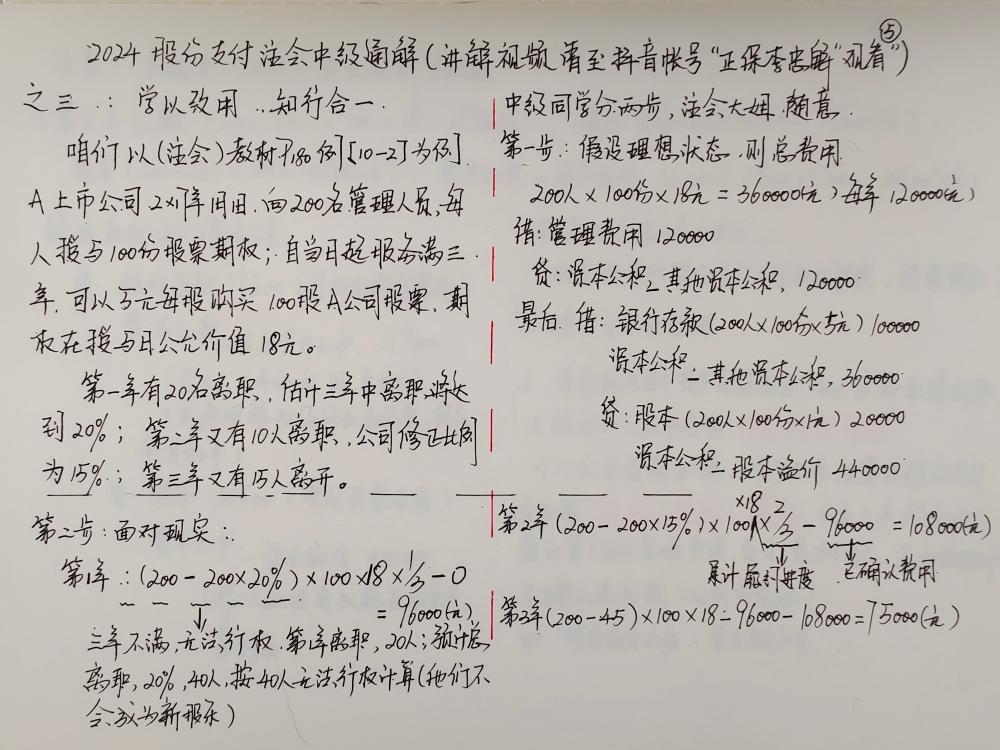 ⑤
2024 股份支付注会中级通解(讲解视频请至抖音帐号“正保李忠魁”观看”)
之三：学以致用，知行合一．
咱们以(注会)教材P180例[10-2]为例.
A上市公司2×1年1月1日，向200名管理人员，每
人授与100份股票期权；自当日起服务满三
年，可以5元每股购买100股A公司股票，期
权在授与日公允价值18元。
第一年有20名离职，估计三年中离职将达
到20%；第二年又有10人离职，公司修正比例
为15%；第三年又有15人离开。
第二步：面对现实：
第1年：(200－200×20%)×100×18×1/3－0
＝96000(元)
三年不满，无法行权．第1年离职，20人；预计总
离职，20%，40人，按40人无法行权计算(他们不
会成为新股东)
中级同学分两步，注会大姐．随意．
第一步：假设理想状态，则总费用
200人×100份×18元＝360000(元)每年120000(元)
借：管理费用 120000
贷：资本公积－其他资本公积，120000
最后．借：银行存款(200人×100份×5元)100000
资本公积－其他资本公积，360000
贷：股本(200人×100份×1元)20000
资本公积－股本溢价 440000
第2年(200－200×15%)×100×18×2/3－96000＝108000(元)
累计 进度 已确认费用
第3年(200－45)×100×18－96000－108000＝75000(元)